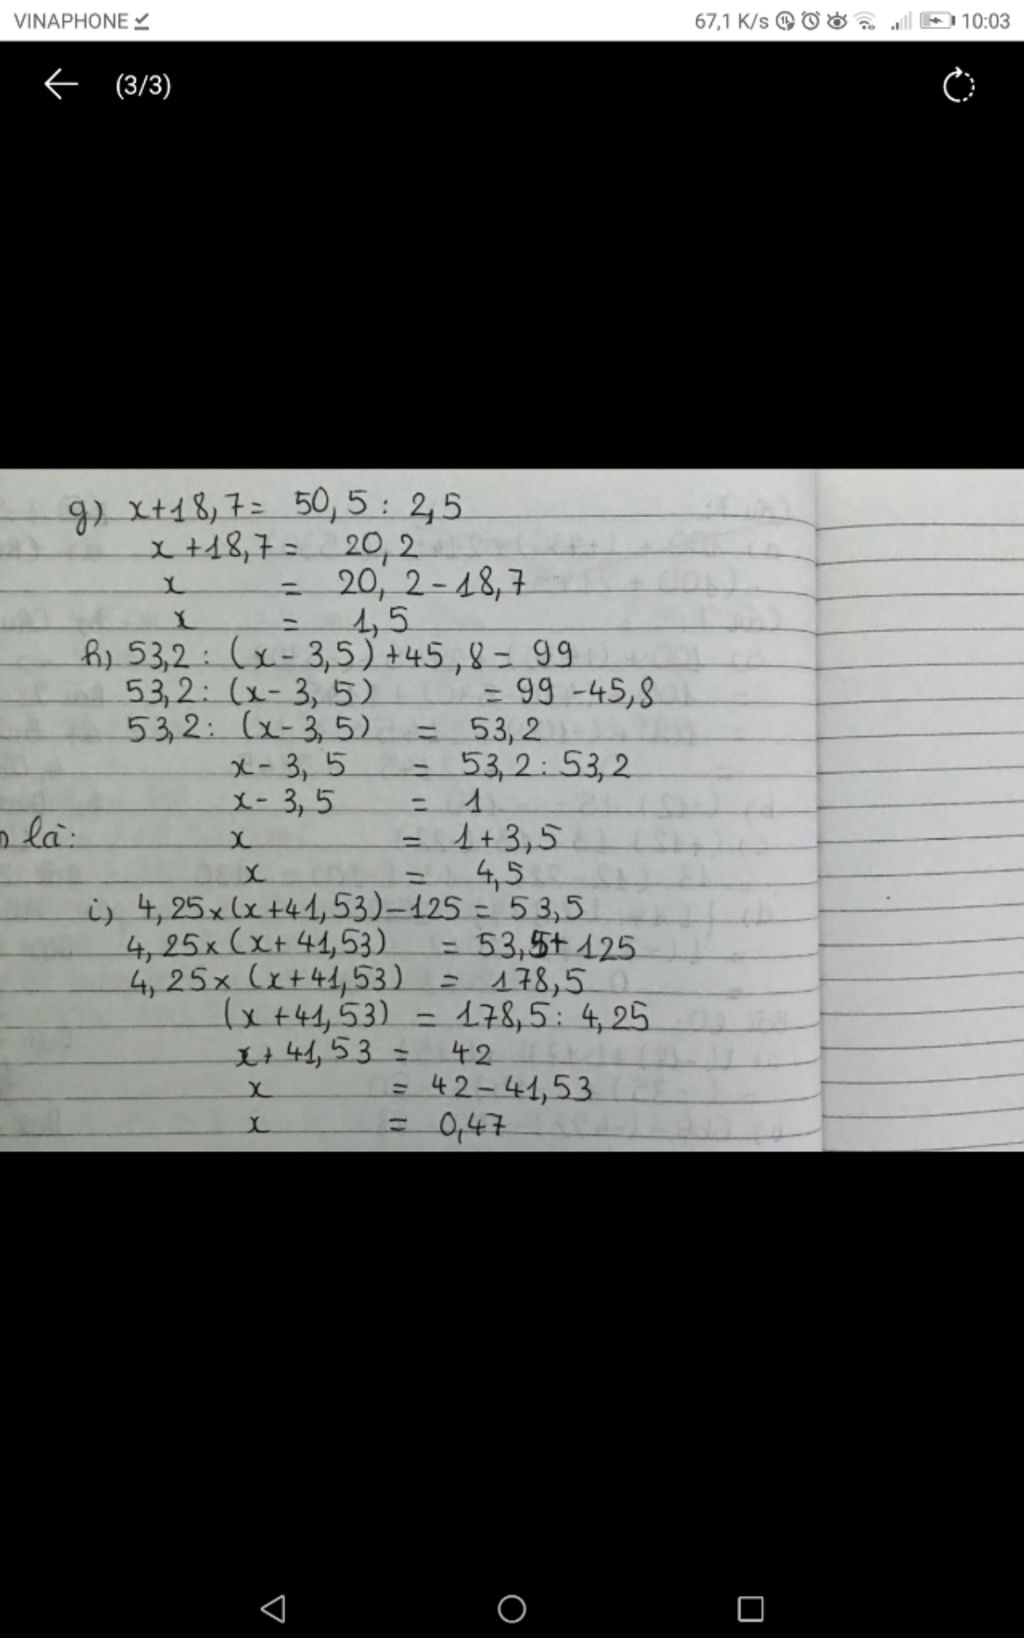 VINAPHONE 67,1 K/s 10:03
(3/3)
g) x+18,7= 50,5 : 2,5
x +18,7 = 20,2
x = 20,2-18,7
x = 1,5
h) 53,2 : (x- 3,5) +45,8 = 99
53,2: (x- 3,5) = 99 -45,8
53,2: (x-3,5) = 53,2
x- 3,5 = 53,2 : 53,2
x- 3,5 = 1
là: x = 1+3,5
x = 4,5
i) 4,25x(x+41,53)-125 = 53,5
4,25x(x+ 41,53) = 53,5+ 125
4,25x (x+41,53) = 178,5
(x +41,53) = 178,5: 4,25
x+ 41,53 = 42
x = 42-41,53
x = 0,47